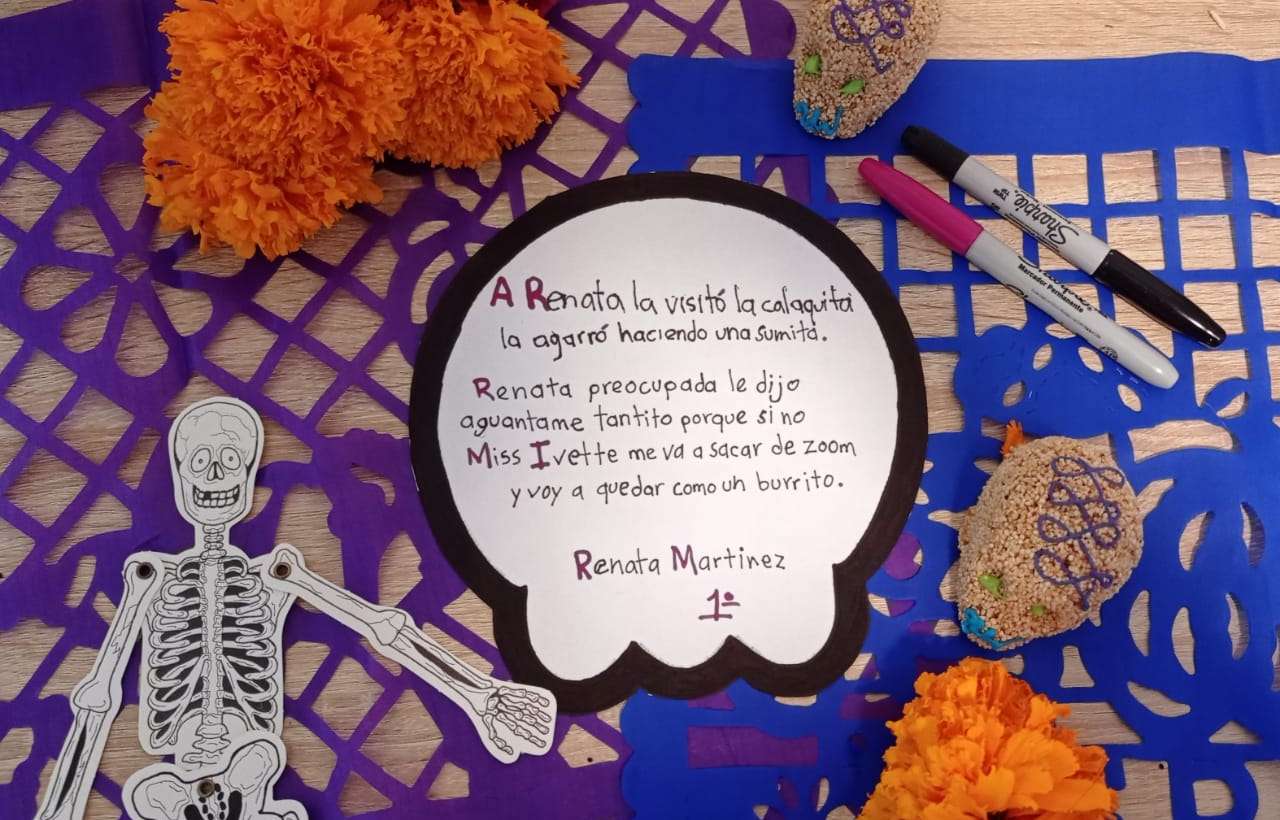 A Renata la visitó la calaquita
la agarró haciendo una sumita.
Renata preocupada le dijo
aguantame tantito porque si no
Miss Ivette me va a sacar de zoom
y voy a quedar como un burrito.
Renata Martinez
1º
Sharpie
Marcador Permanente